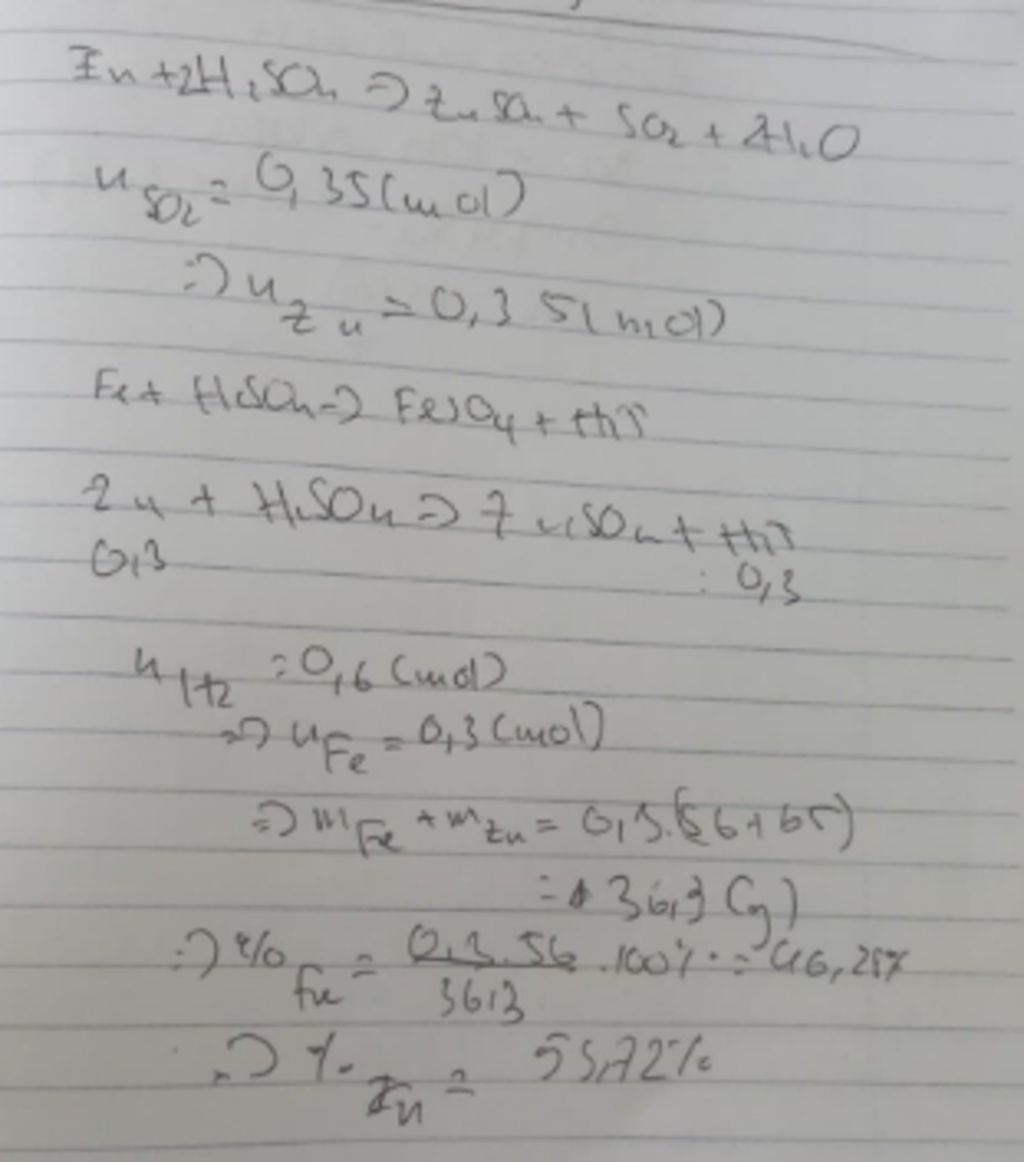 Zn + 2H₂SO₄ => ZnSO₄ + SO₂ + 2H₂O
n SO₂ = 0,35(mol)
=> n Zn = 0,35(mol)
Fe + H₂SO₄ => FeSO₄ + H₂↑
Zn + H₂SO₄ => ZnSO₄ + H₂↑
0,3 : 0,3
n H₂ = 0,6 (mol)
=> n Fe = 0,3 (mol)
=> m Fe + m Zn = 0,3.(56+65)
= 36,3 (g)
=> % Fe = 0,3.56 / 36,3 .100% = 46,28%
=> % Zn = 53,72%